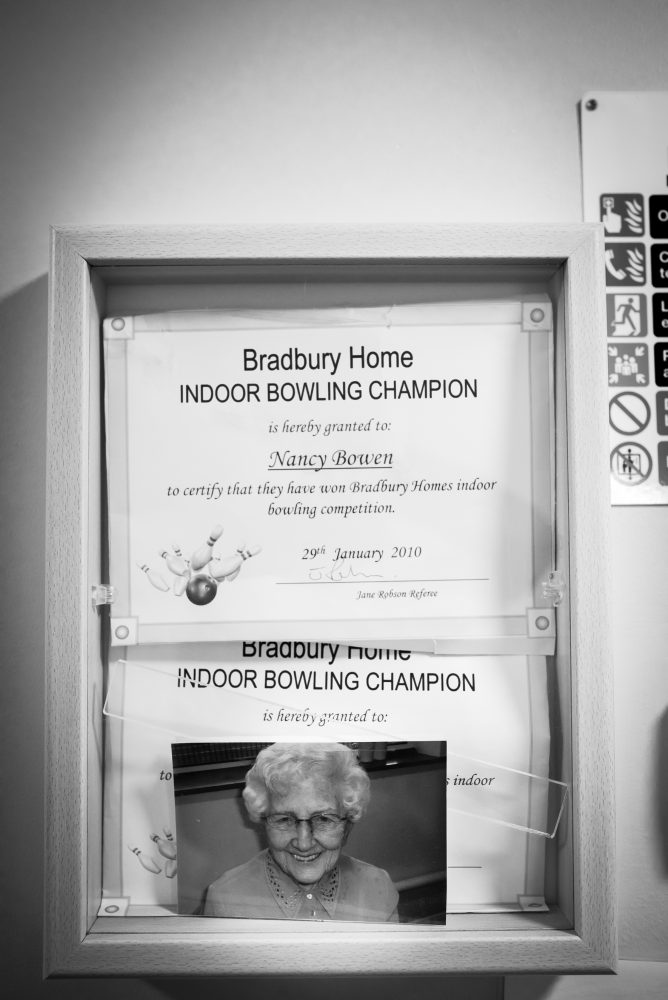 Bradbury Home
INDOOR BOWLING CHAMPION
is hereby granted to:
Nancy Bowen
to certify that they have won Bradbury Homes indoor
bowling competition.
29th January 2010
Jane Robson Referee
Bradbury Home
INDOOR BOWLING CHAMPION
is hereby granted to:
to
indoor